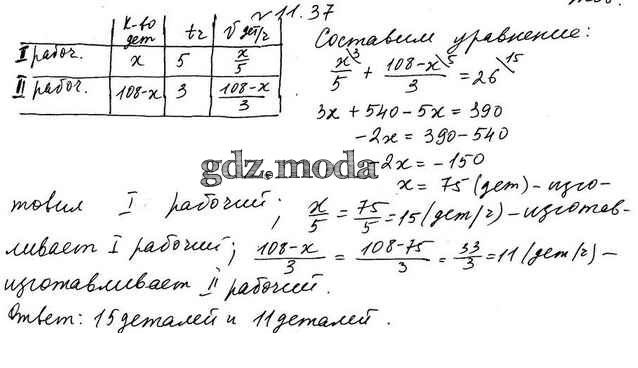 √ 11.37
к-во дет | t ч | V дет/ч
I рабоч. | x | 5 | x/5
II рабоч. | 108-x | 3 | (108-x)/3
Составим уравнение:
x/5 \3 + (108-x)/3 \5 = 26 \15
3x + 540 - 5x = 390
-2x = 390 - 540
-2x = -150
gdz.moda
x = 75 (дет) - изго-
товил I рабочий; x/5 = 75/5 = 15 (дет/ч) - изготав-
ливает I рабочий; (108-x)/3 = (108-75)/3 = 33/3 = 11 (дет/ч) -
изготавливает II рабочий.
Ответ: 15 деталей и 11 деталей.